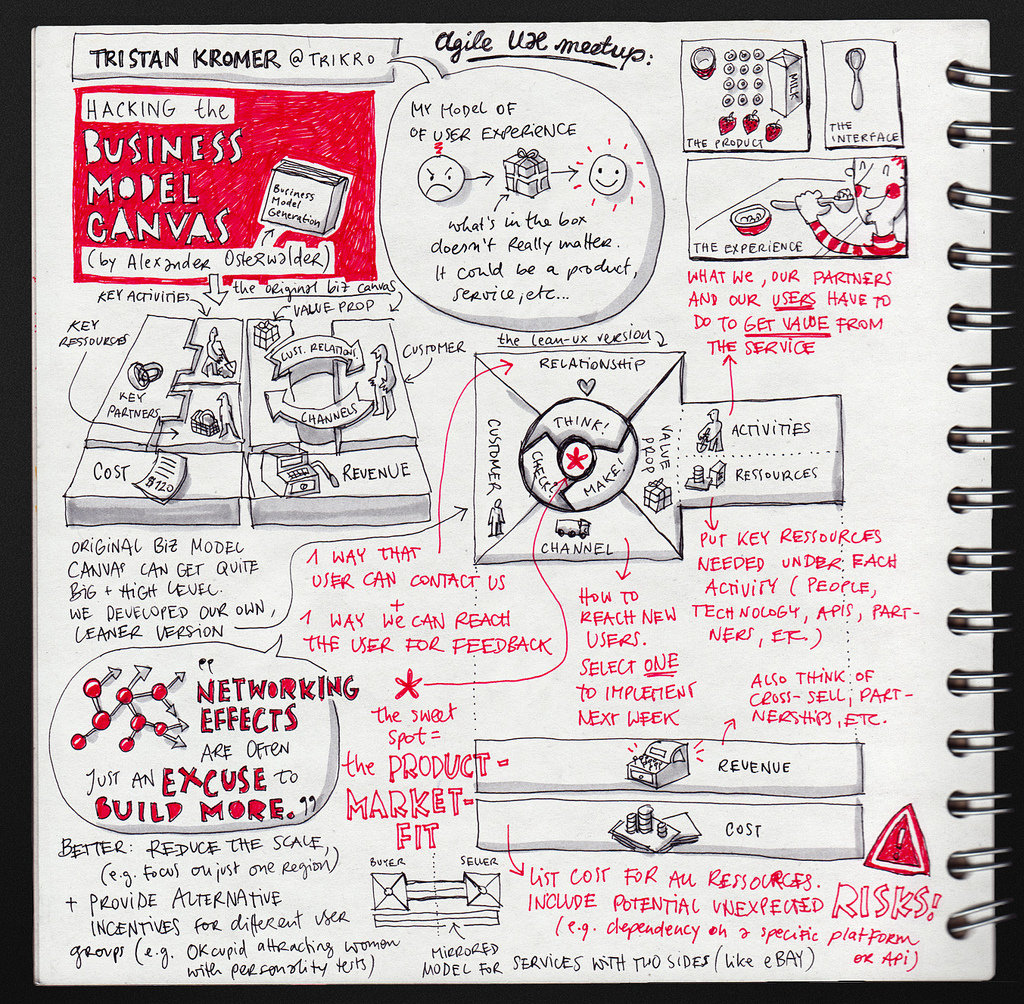 TRISTAN KROMER @TRIKRO
agile UX meetup:
HACKING the
BUSINESS
MODEL
CANVAS
(by Alexander Osterwalder)
Business
Model
Generation
MY MODEL OF
OF USER EXPERIENCE
what's in the box
doesn't really matter.
It could be a product,
service, etc...
MILK
THE PRODUCT
THE
INTERFACE
THE EXPERIENCE
WHAT WE, OUR PARTNERS
AND OUR USERS HAVE TO
DO TO GET VALUE FROM
THE SERVICE
the original biz canvas
KEY ACTIVITIES
VALUE PROP
KEY
RESSOURCES
CUST. RELATION
CUSTOMER
KEY
PARTNERS
CHANNELS
COST
$720
REVENUE
the lean-ux version
RELATIONSHIP
CUSTOMER
THINK!
CHECK!
MAKE!
VALUE
PROP
CHANNEL
ACTIVITIES
RESSOURCES
ORIGINAL BIZ MODEL
CANVAS CAN GET QUITE
BIG + HIGH LEVEL.
WE DEVELOPED OUR OWN,
LEANER VERSION
1 WAY THAT
USER CAN CONTACT US
+
1 WAY WE CAN REACH
THE USER FOR FEEDBACK
HOW TO
REACH NEW
USERS.
SELECT ONE
TO IMPLEMENT
NEXT WEEK
PUT KEY RESSOURCES
NEEDED UNDER EACH
ACTIVITY (PEOPLE,
TECHNOLOGY, APIS, PART-
NERS, ETC.)
ALSO THINK OF
CROSS-SELL, PART-
NERSHIPS, ETC.
"NETWORKING
EFFECTS
ARE OFTEN
JUST AN EXCUSE TO
BUILD MORE."
the sweet
spot =
the PRODUCT-
MARKET-
FIT
REVENUE
COST
BETTER: REDUCE THE SCALE,
(e.g. Focus on just one region)
+ PROVIDE ALTERNATIVE
INCENTIVES FOR different user
groups (e.g. OKcupid attracting women
with personality tests)
BUYER
SELLER
MIRRORED
MODEL FOR SERVICES WITH TWO SIDES (like eBAY)
LIST COST FOR ALL RESSOURCES.
INCLUDE POTENTIAL UNEXPECTED RISKS!
(e.g. dependency on a specific platform
OR API)